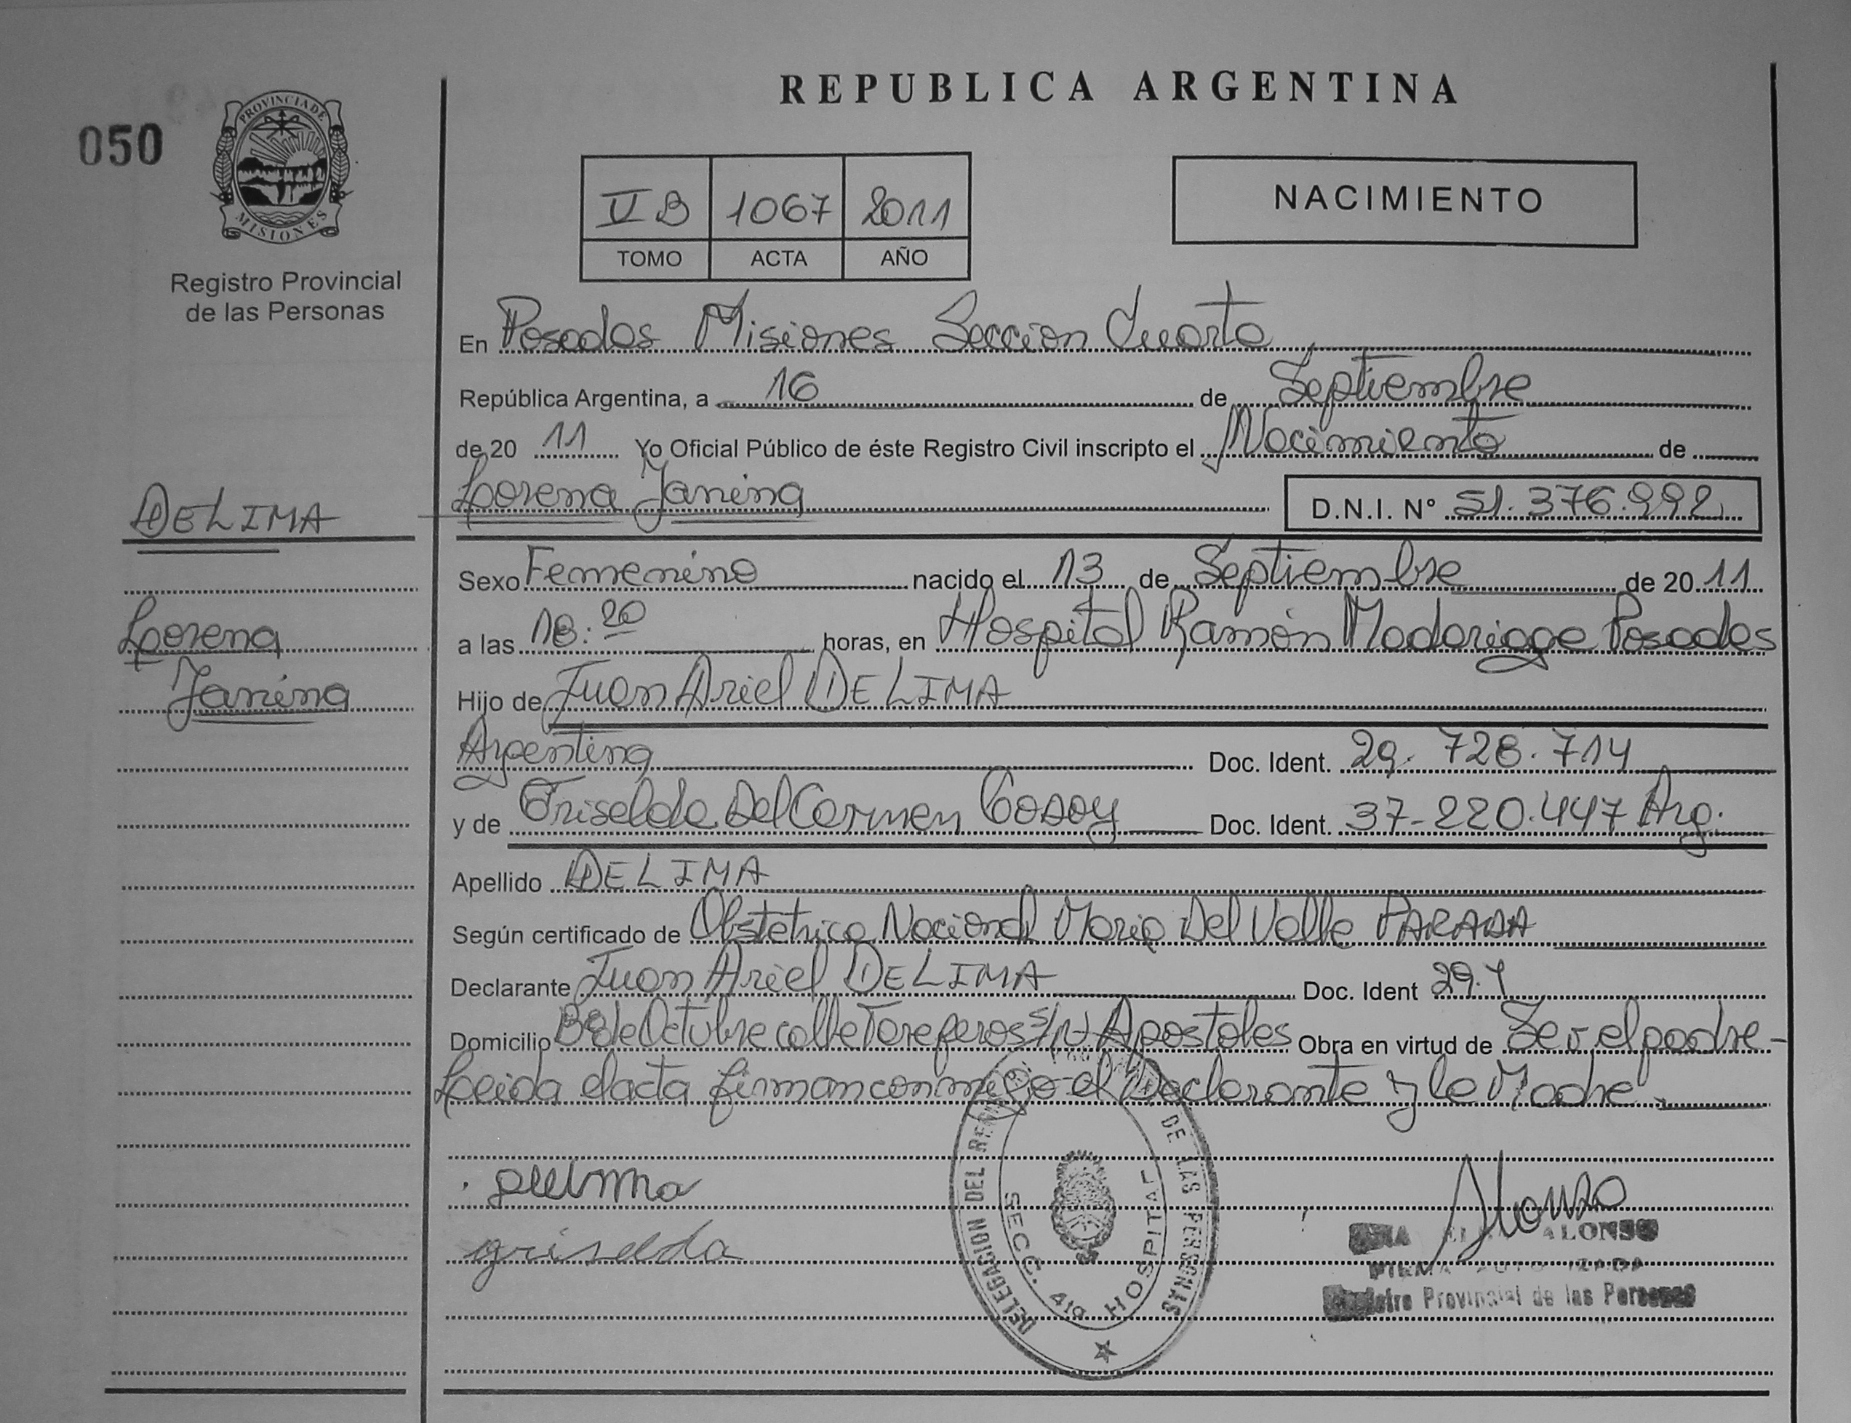 REPUBLICA ARGENTINA
050
PROVINCIA DE
MISIONES
Registro Provincial
de las Personas
VB 1067 2011
TOMO ACTA AÑO
NACIMIENTO
En Posadas Misiones Seccion Cuarta
República Argentina, a 16 de Septiembre
de 20 11 Yo Oficial Público de éste Registro Civil inscripto el Nacimiento de
Lorena Janina D.N.I. N° 51.376.992
DE LIMA
Lorena
Janina
Sexo Femenino nacido el 13 de Septiembre de 20 11
a las 18:20 horas, en Hospital Ramón Madariaga Posadas
Hijo de Juan Ariel DE LIMA
Argentina Doc. Ident. 29.728.714
y de Griselda Del Carmen Godoy Doc. Ident. 37-220.447 Arg.
Apellido DE LIMA
Según certificado de Obstetrica Nacional Maria Del Valle PARADA
Declarante Juan Ariel DE LIMA Doc. Ident 29.
Domicilio de Octubre calle s/N Apostoles Obra en virtud de Ser el padre-
Leida el acta firman conmigo el Declarante y la Madre
griselda
DELEGACION DEL DE LAS PERSONAS
SECC. 4ta HOSPITAL
Alonso
ALONSO
Provincial de las Personas